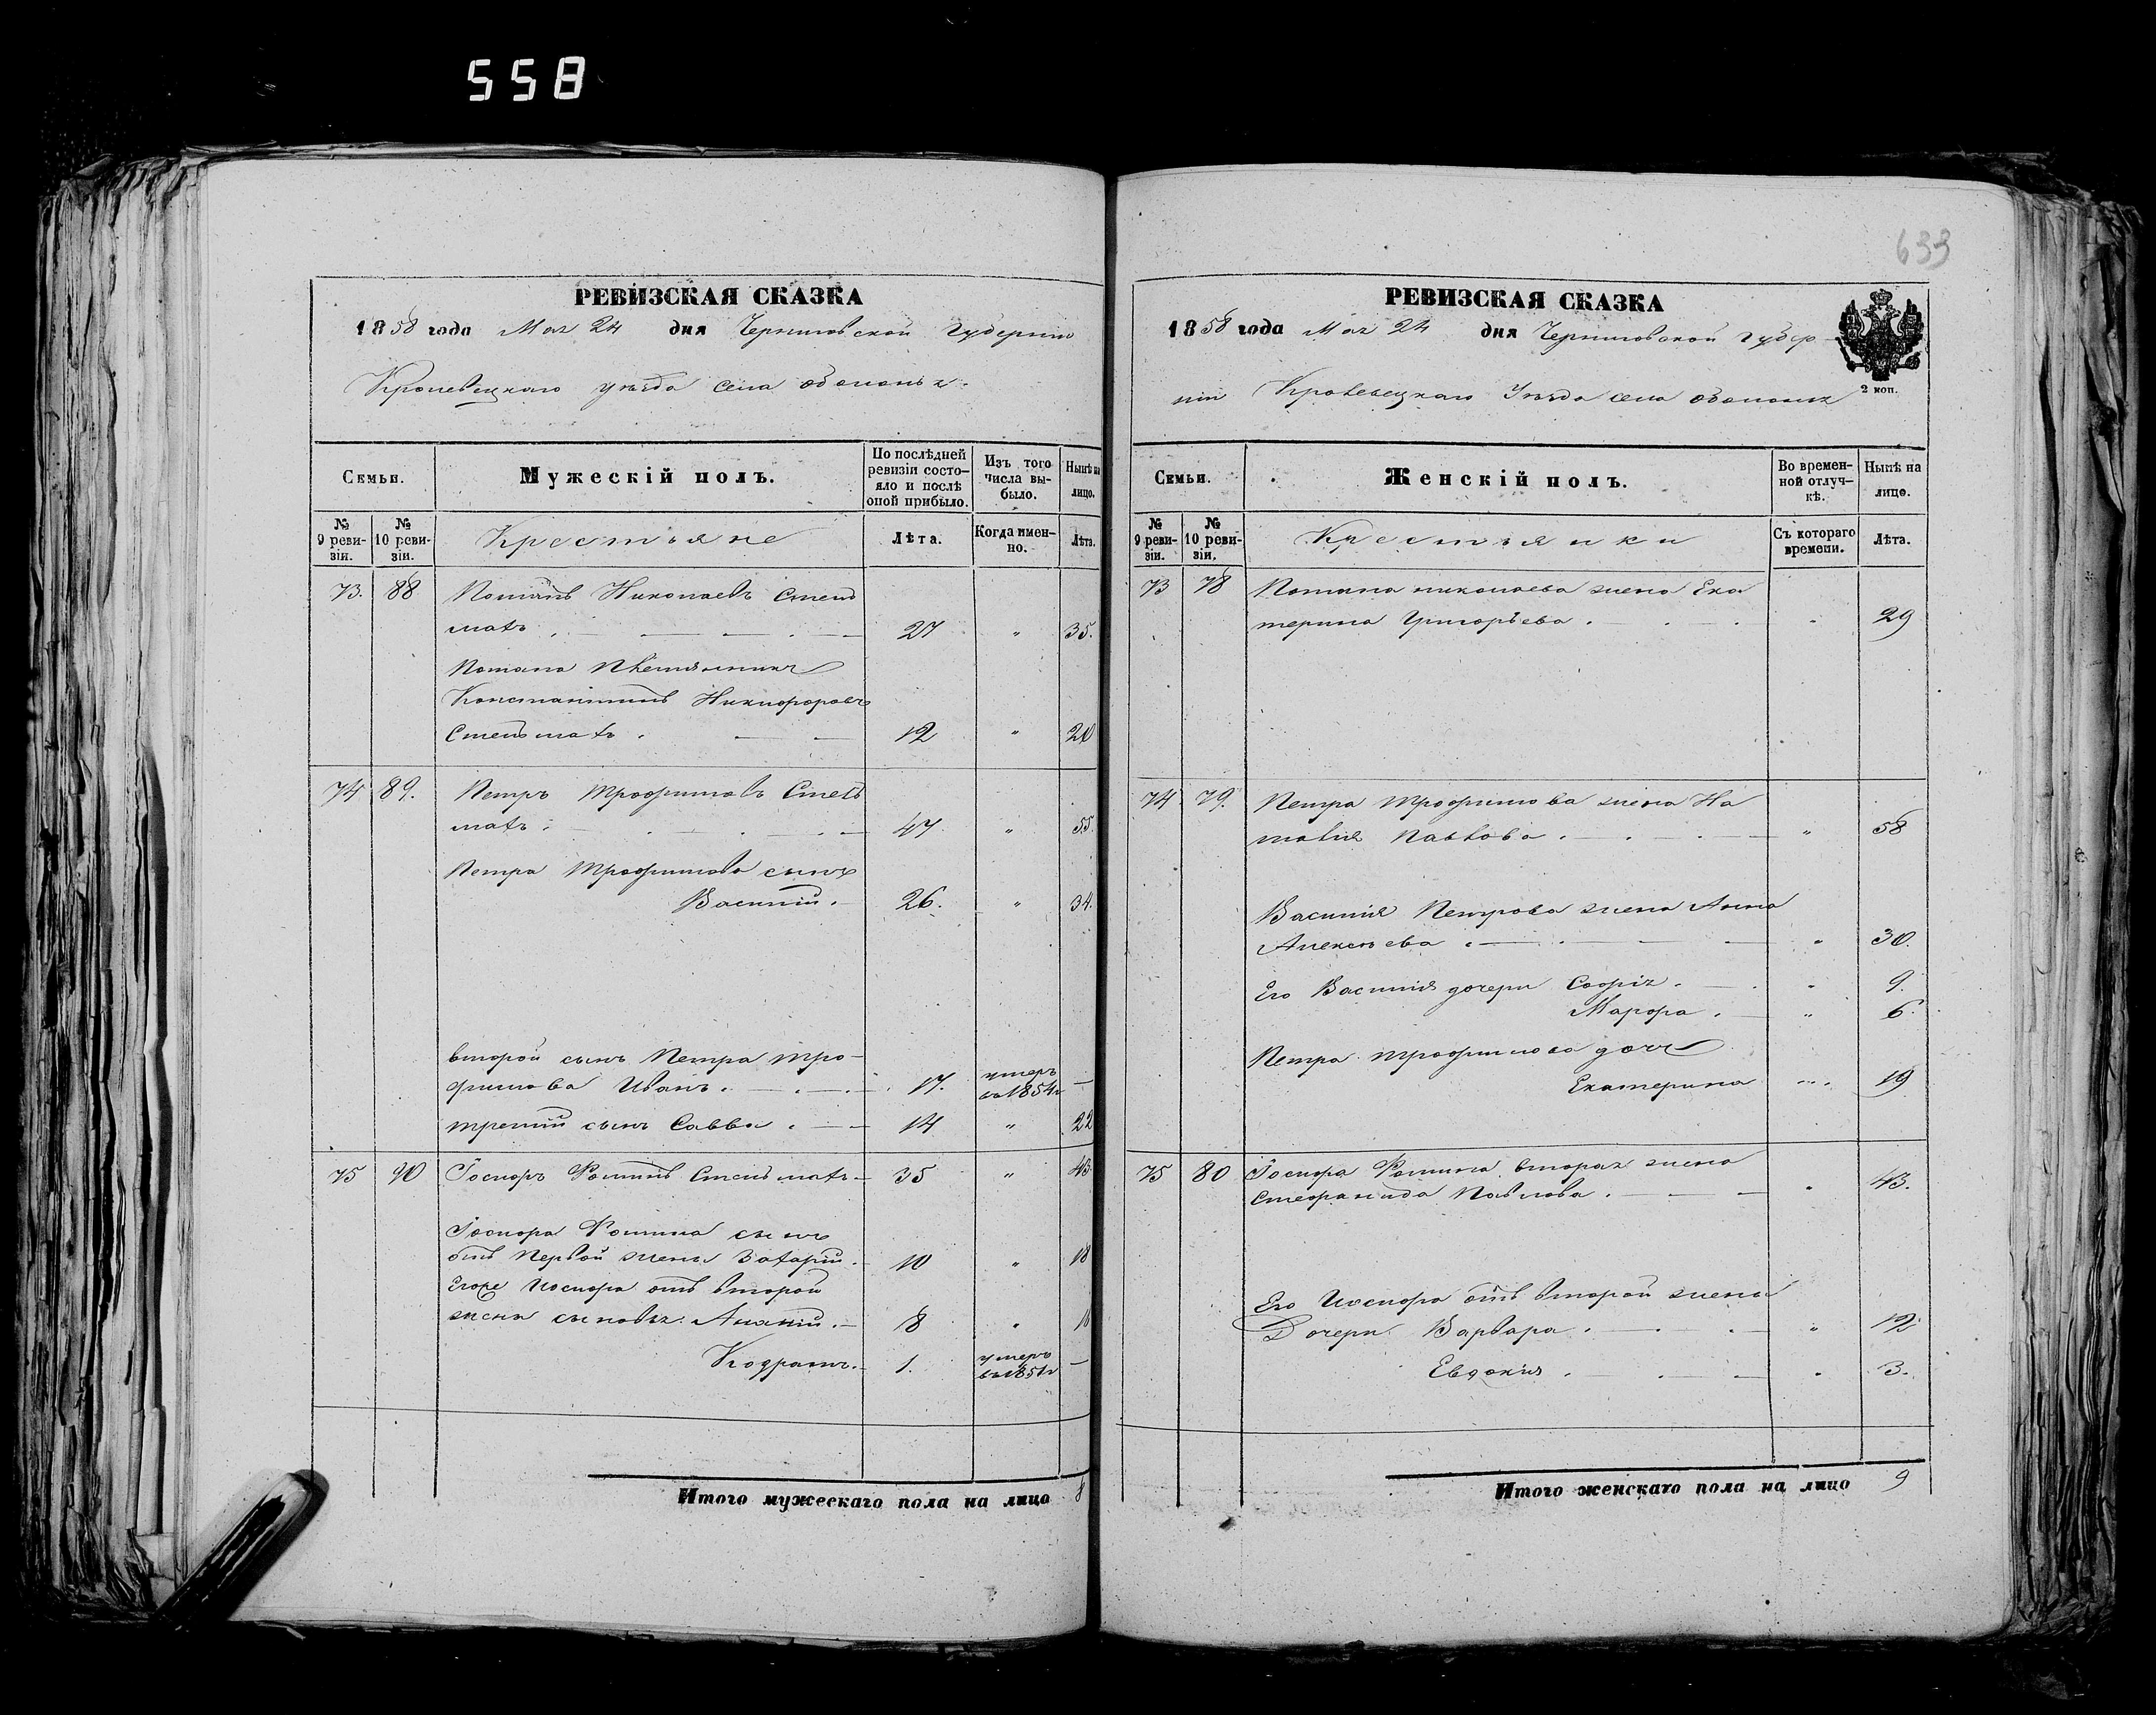 558
633
РЕВИЗСКАЯ СКАЗКА
1858 года Мая 24 дня Черниговской Губернiи
Кролевецкаго уѣзда села Оболонья.
Семьи.
Мужескій полъ.
По послѣдней ревизіи состояло и послѣ оной прибыло.
Изъ того числа выбыло.
Нынѣ на лицо.
№ 9 ревизіи.
№ 10 ревизіи.
Крестьяне
Лѣта.
Когда именно.
Лѣта.
73. 88 Потапъ Николаевъ Стель
махъ. 27 " 35.
Потапа Племянникъ
Константинъ Никифоровъ
Стельмахъ. 12 " 20
74 89. Петръ Трофимовъ Стель
махъ. 47. " 55.
Петра Трофимова сынъ
Василій. 26. " 34.
второй сынъ Петра Тро-
фимова Иванъ. 17. умеръ въ 1854г —
третій сынъ Савва. 14 " 22
75 90 Іосифъ Фоминъ Стельмахъ 35 " 43
Іосифа Фомина сынъ
отъ Первой жены Захарій. 10 " 18
Егоже Иосифа отъ второй
жены сыновья: Ананій. 8 " 16
Кодратъ. 1. умеръ въ 1851г —
Итого мужескаго пола на лицо 8
РЕВИЗСКАЯ СКАЗКА
1858 года Мая 24 дня Черниговской Губер-
2 коп.
ніи Кролевецкаго Уѣзда села Оболонья
Семьи.
Женскій полъ.
Во временной отлучкѣ.
Нынѣ на лицо.
№ 9 ревизіи.
№ 10 ревизіи.
Крестьянки
Съ котораго времени.
Лѣта.
73 78 Потапа николаева жена Ека
терина Григорьева. " 29
74 79. Петра Трофимова жена На
талія Павлова. " 58
Василія Петрова жена Анна
Алексѣева " 30.
Его Василія дочери Софія. " 9.
Марфа. " 6.
Петра Трофимова дочь
Екатерина " 19
75 80 Іосифа Фомина вторая жена
Стефанида Павлова. " 43.
Его Иосифа отъ второй жены
Дочери Варвара. " 12
Евдокія. " 3.
Итого женскаго пола на лицо 9